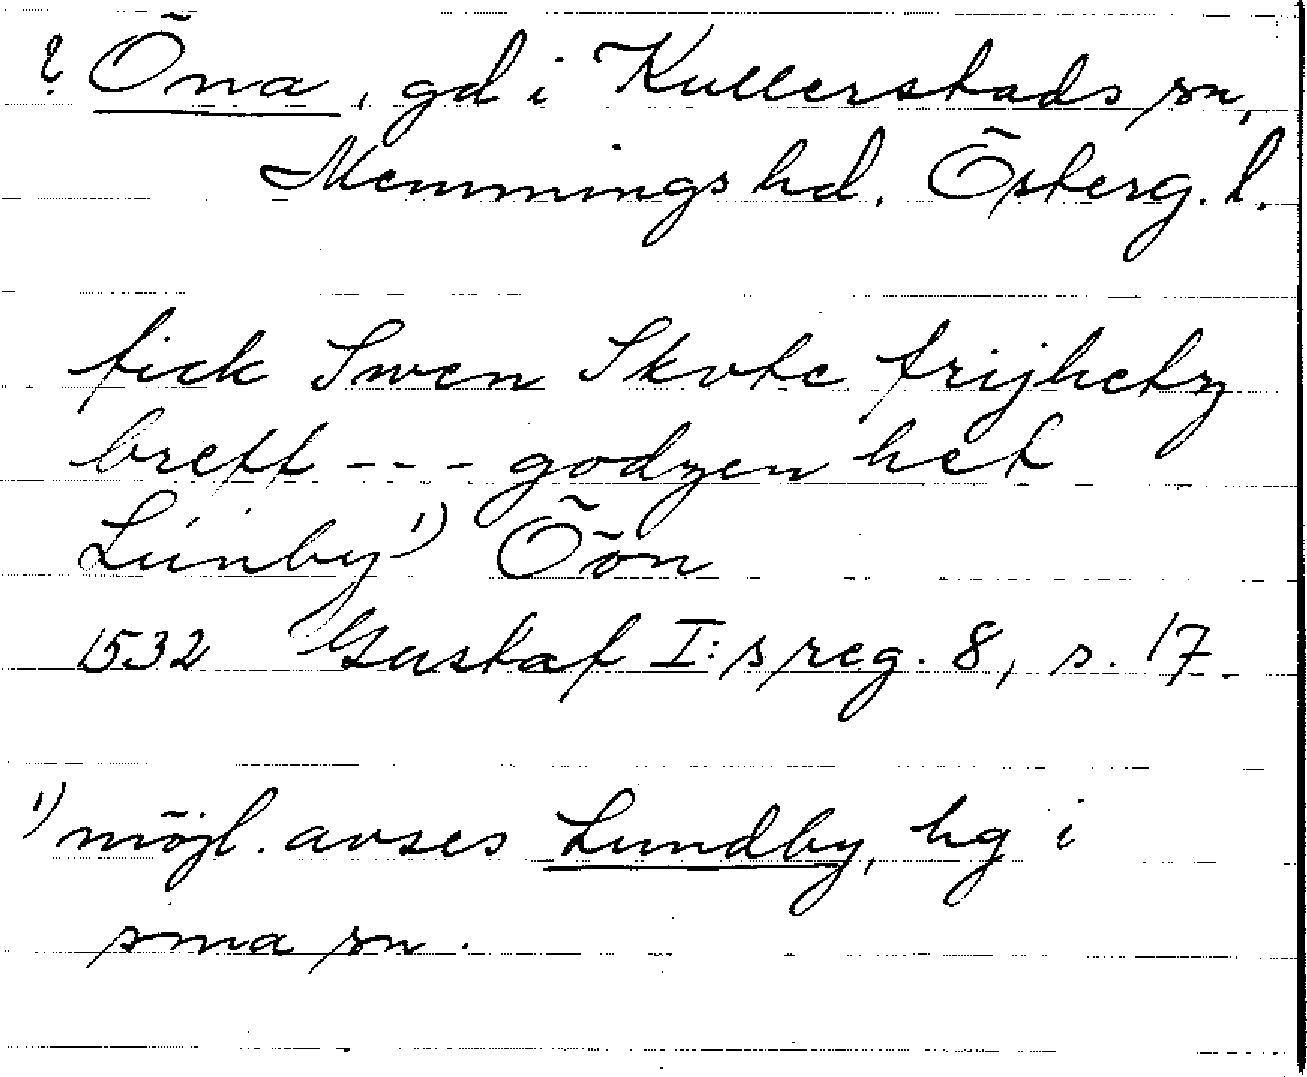 ? Öna, gd i Kullerstads sn,
Memmings hd. Österg. l.
fick Swen Skote frijhetz
breff --- godzen het
Lúnby¹⁾ Öön
1532 Gustaf I:s reg. 8, s. 17.
¹⁾ möjl. avses Lundby, hg i
sma sn.